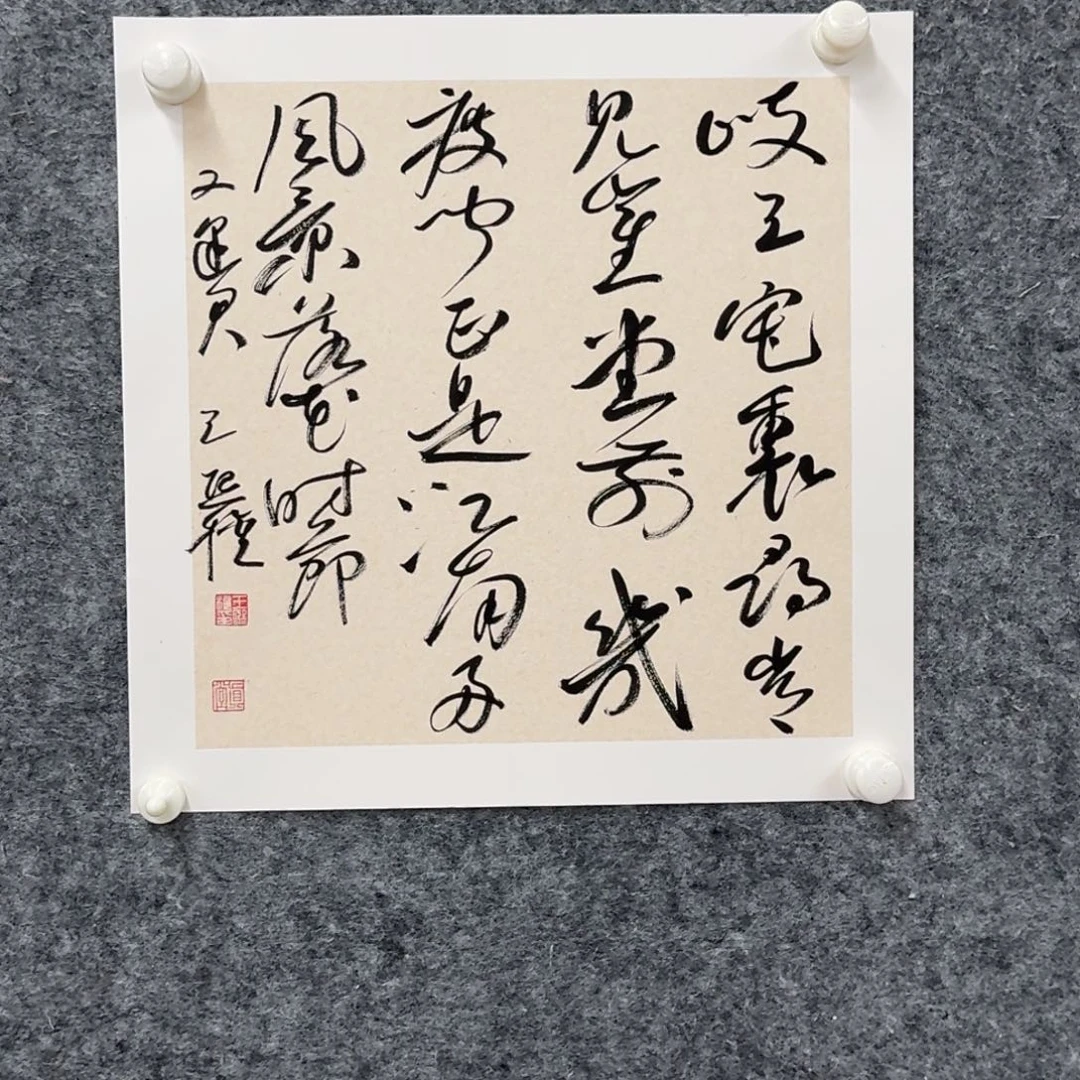 岐王宅裏尋常
見崔堂前幾
度聞正是江南好
風景落花時節
又逢君 王